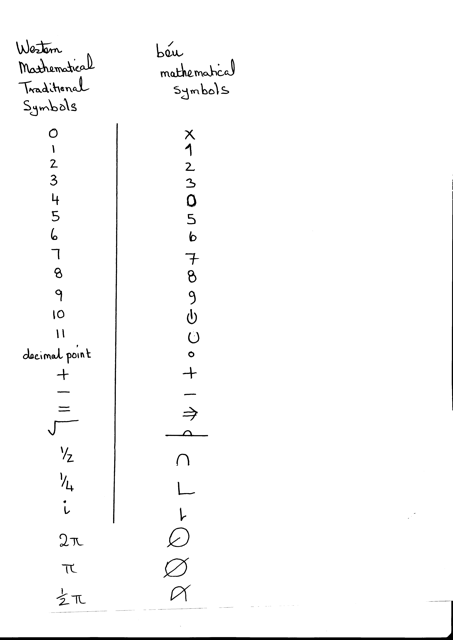 Western
Mathematical
Traditional
Symbols
béu
mathematical
symbols
0 x
1 1
2 2
3 3
4 0
5 5
6 6
7 7
8 8
9 9
10 ⏻
11 ∪
decimal point °
+ +
− −
= ⇒
√
1/2 ∩
1/4 ∟
i
2π
π ∅
1/2 π